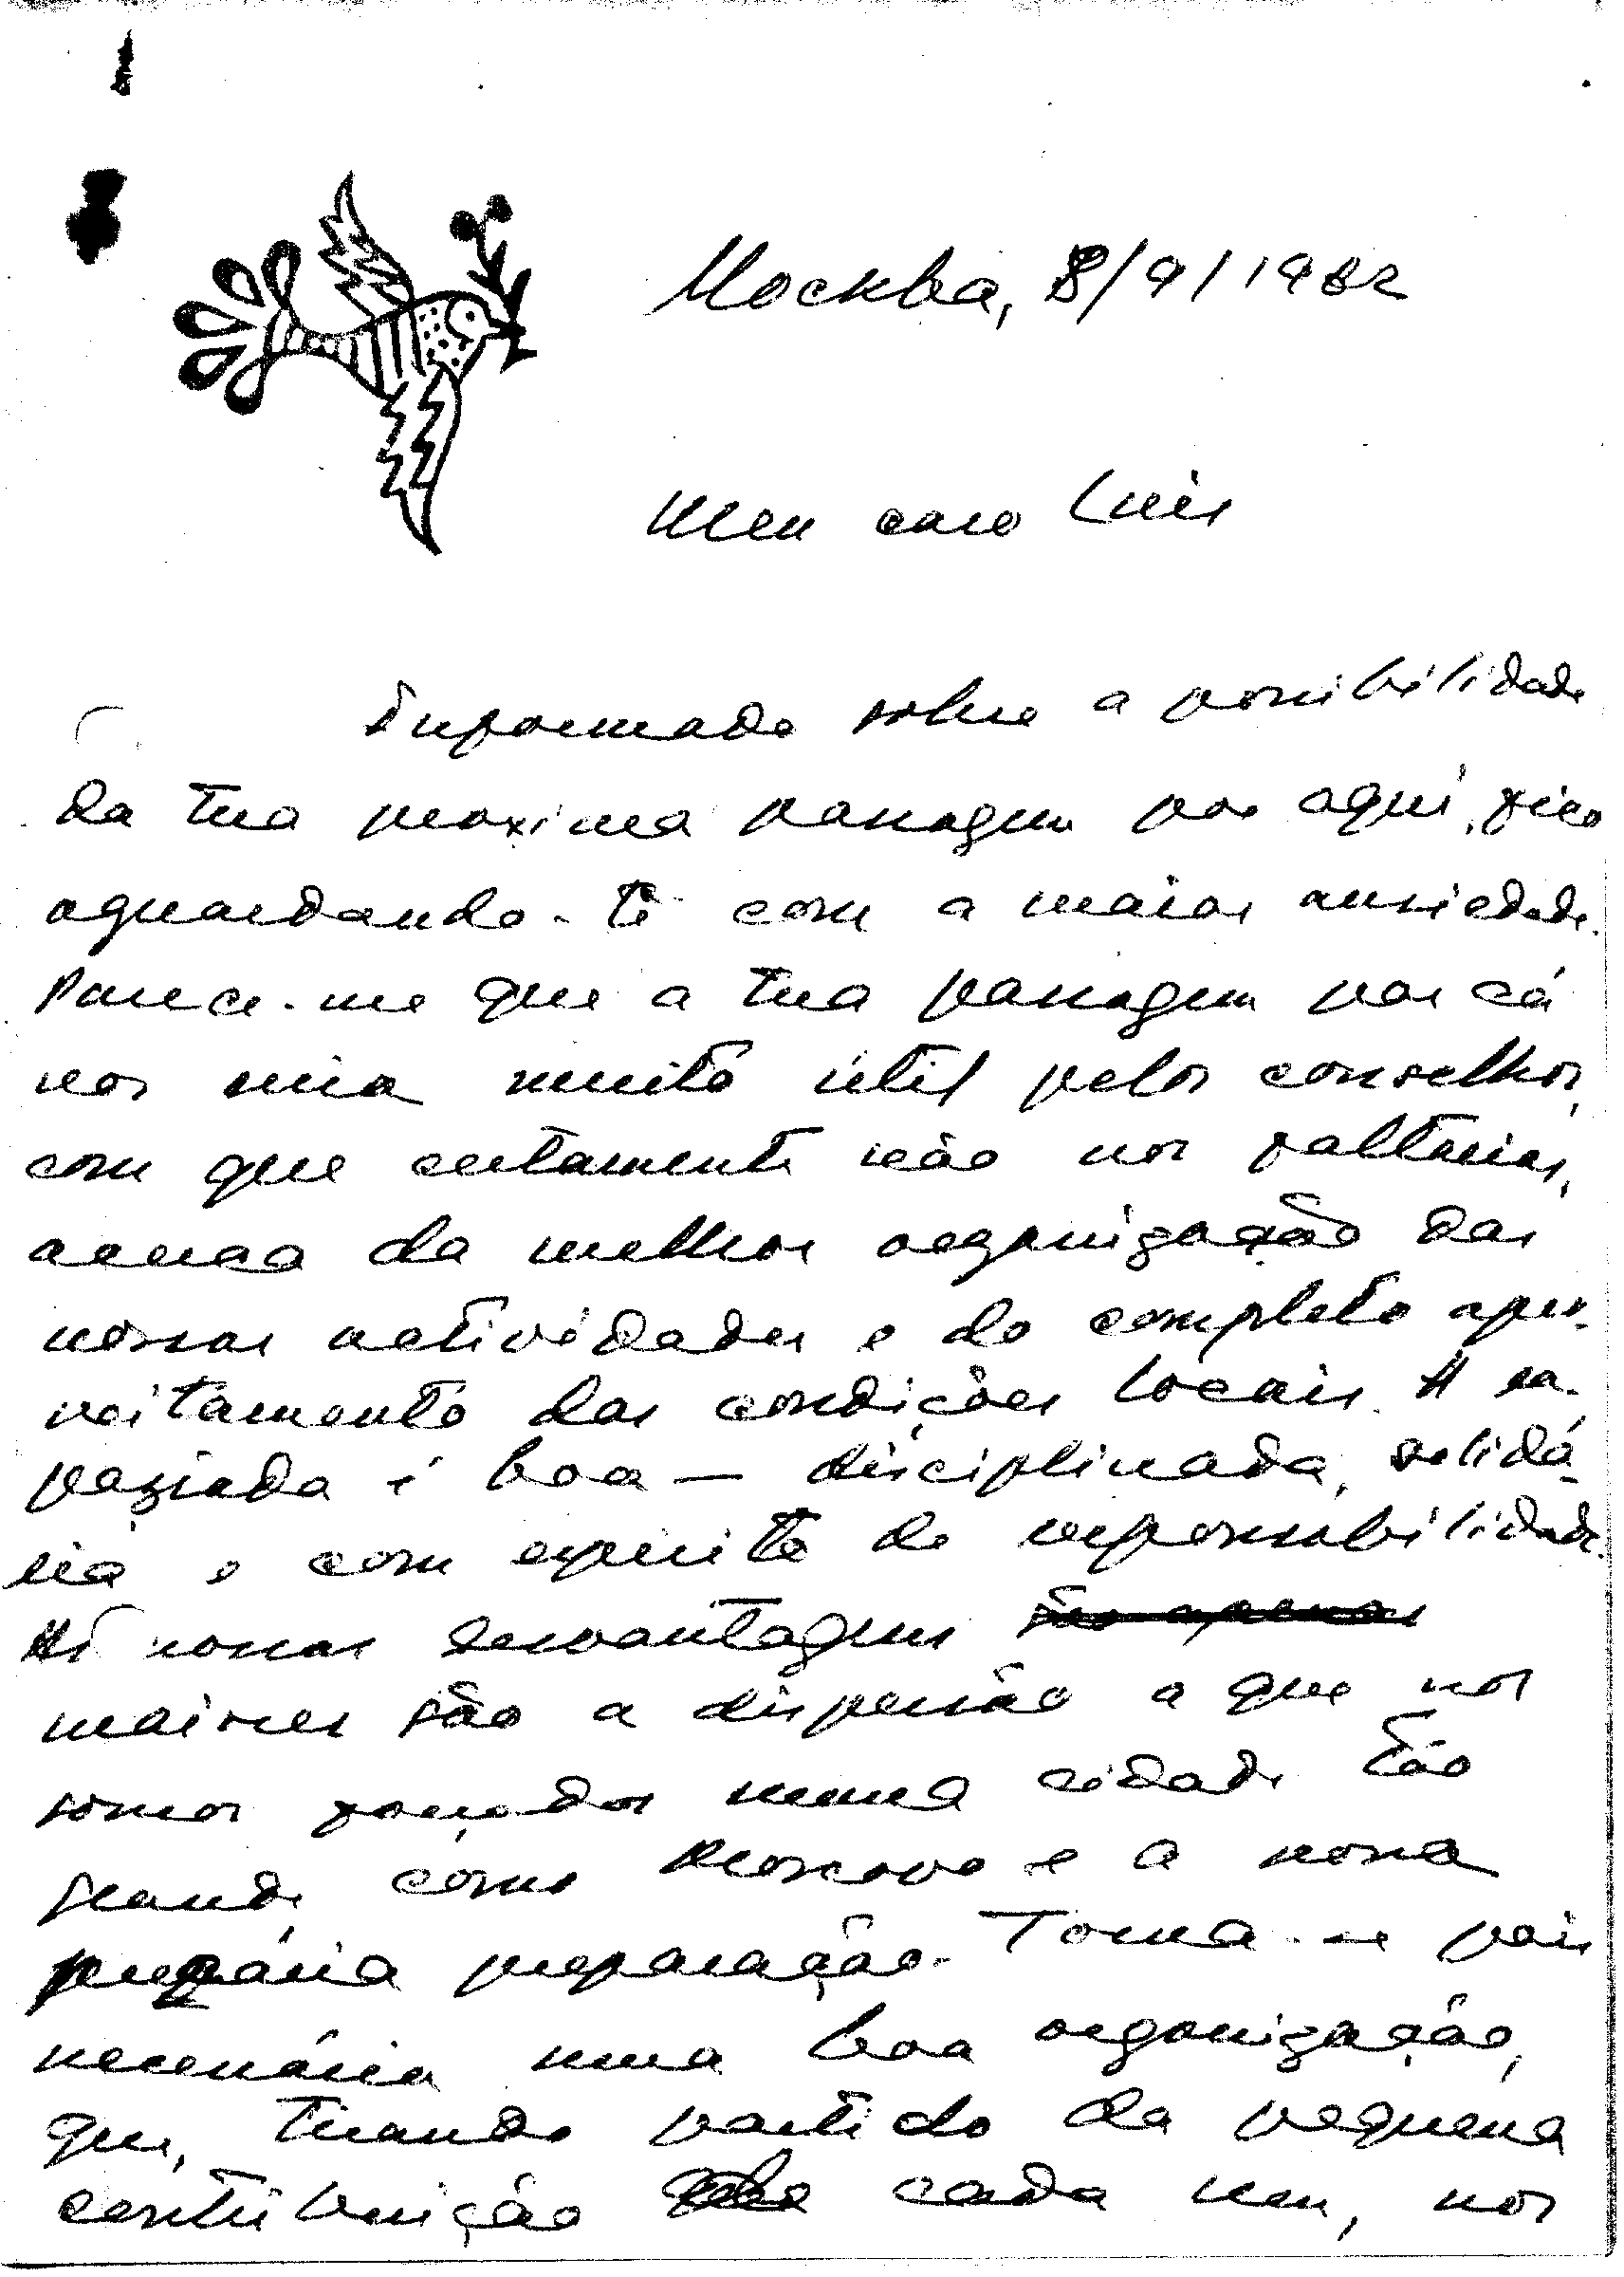 Москва, 8/9/1962
Meu caro Luís
Informado sobre a possibilidade
da tua proxima passagem por aqui, fico
aguardando-te com a maior ansiedade.
Parece-me que a tua passagem por cá
nos seria muito útil pelos conselhos,
com que certamente não nos faltarias,
acerca da melhor organização das
nossas actividades e do completo apro-
veitamento das condições locais. A ra-
paziada é boa — disciplinada, solidá-
ria e com espirito de responsabilidade.
As nossas desvantagens são apenas
maiores são a dispersão a que nos
somos forçados numa cidade tão
grande como Moscovo e a nossa
precária preparação. Torna-se pois
necessária uma boa organização,
que, tirando partido da pequena
contribuição de cada um, nos